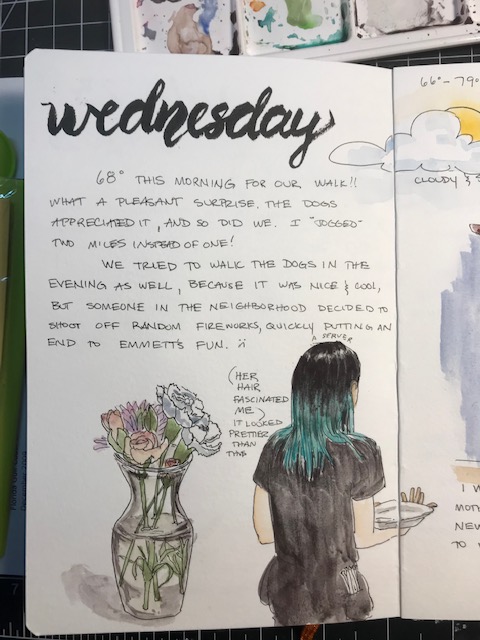 wednesday
68° THIS MORNING FOR OUR WALK!!
WHAT A PLEASANT SURPRISE. THE DOGS
APPRECIATED IT, AND SO DID WE. I "JOGGED"
TWO MILES INSTEAD OF ONE!
WE TRIED TO WALK THE DOGS IN THE
EVENING AS WELL, BECAUSE IT WAS NICE & COOL,
BUT SOMEONE IN THE NEIGHBORHOOD DECIDED TO
SHOOT OFF RANDOM FIREWORKS, QUICKLY PUTTING AN
END TO EMMETT'S FUN.
A SERVER
(HER
HAIR
FASCINATED
ME)
IT LOOKED
PRETTIER
THAN
THIS
66°-79°
CLOUDY &
I
MOTH
NEW
TO
7